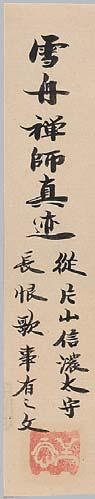 雪舟禅師真迹
従片山信濃太守
長恨歌事有之文